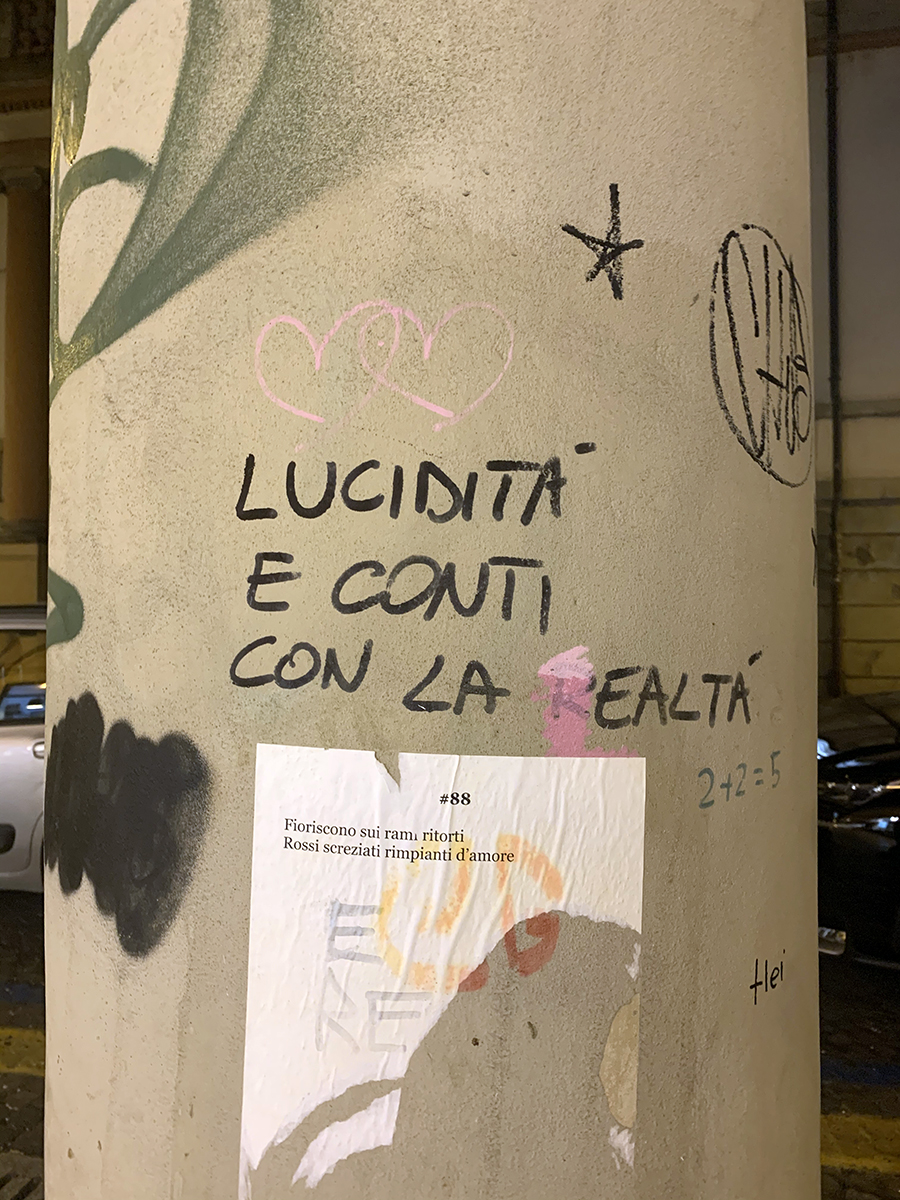 LUCIDITÀ
E CONTI
CON LA REALTÁ
2+2=5
#88
Fioriscono sui rami ritorti
Rossi screziati rimpianti d'amore
Hei